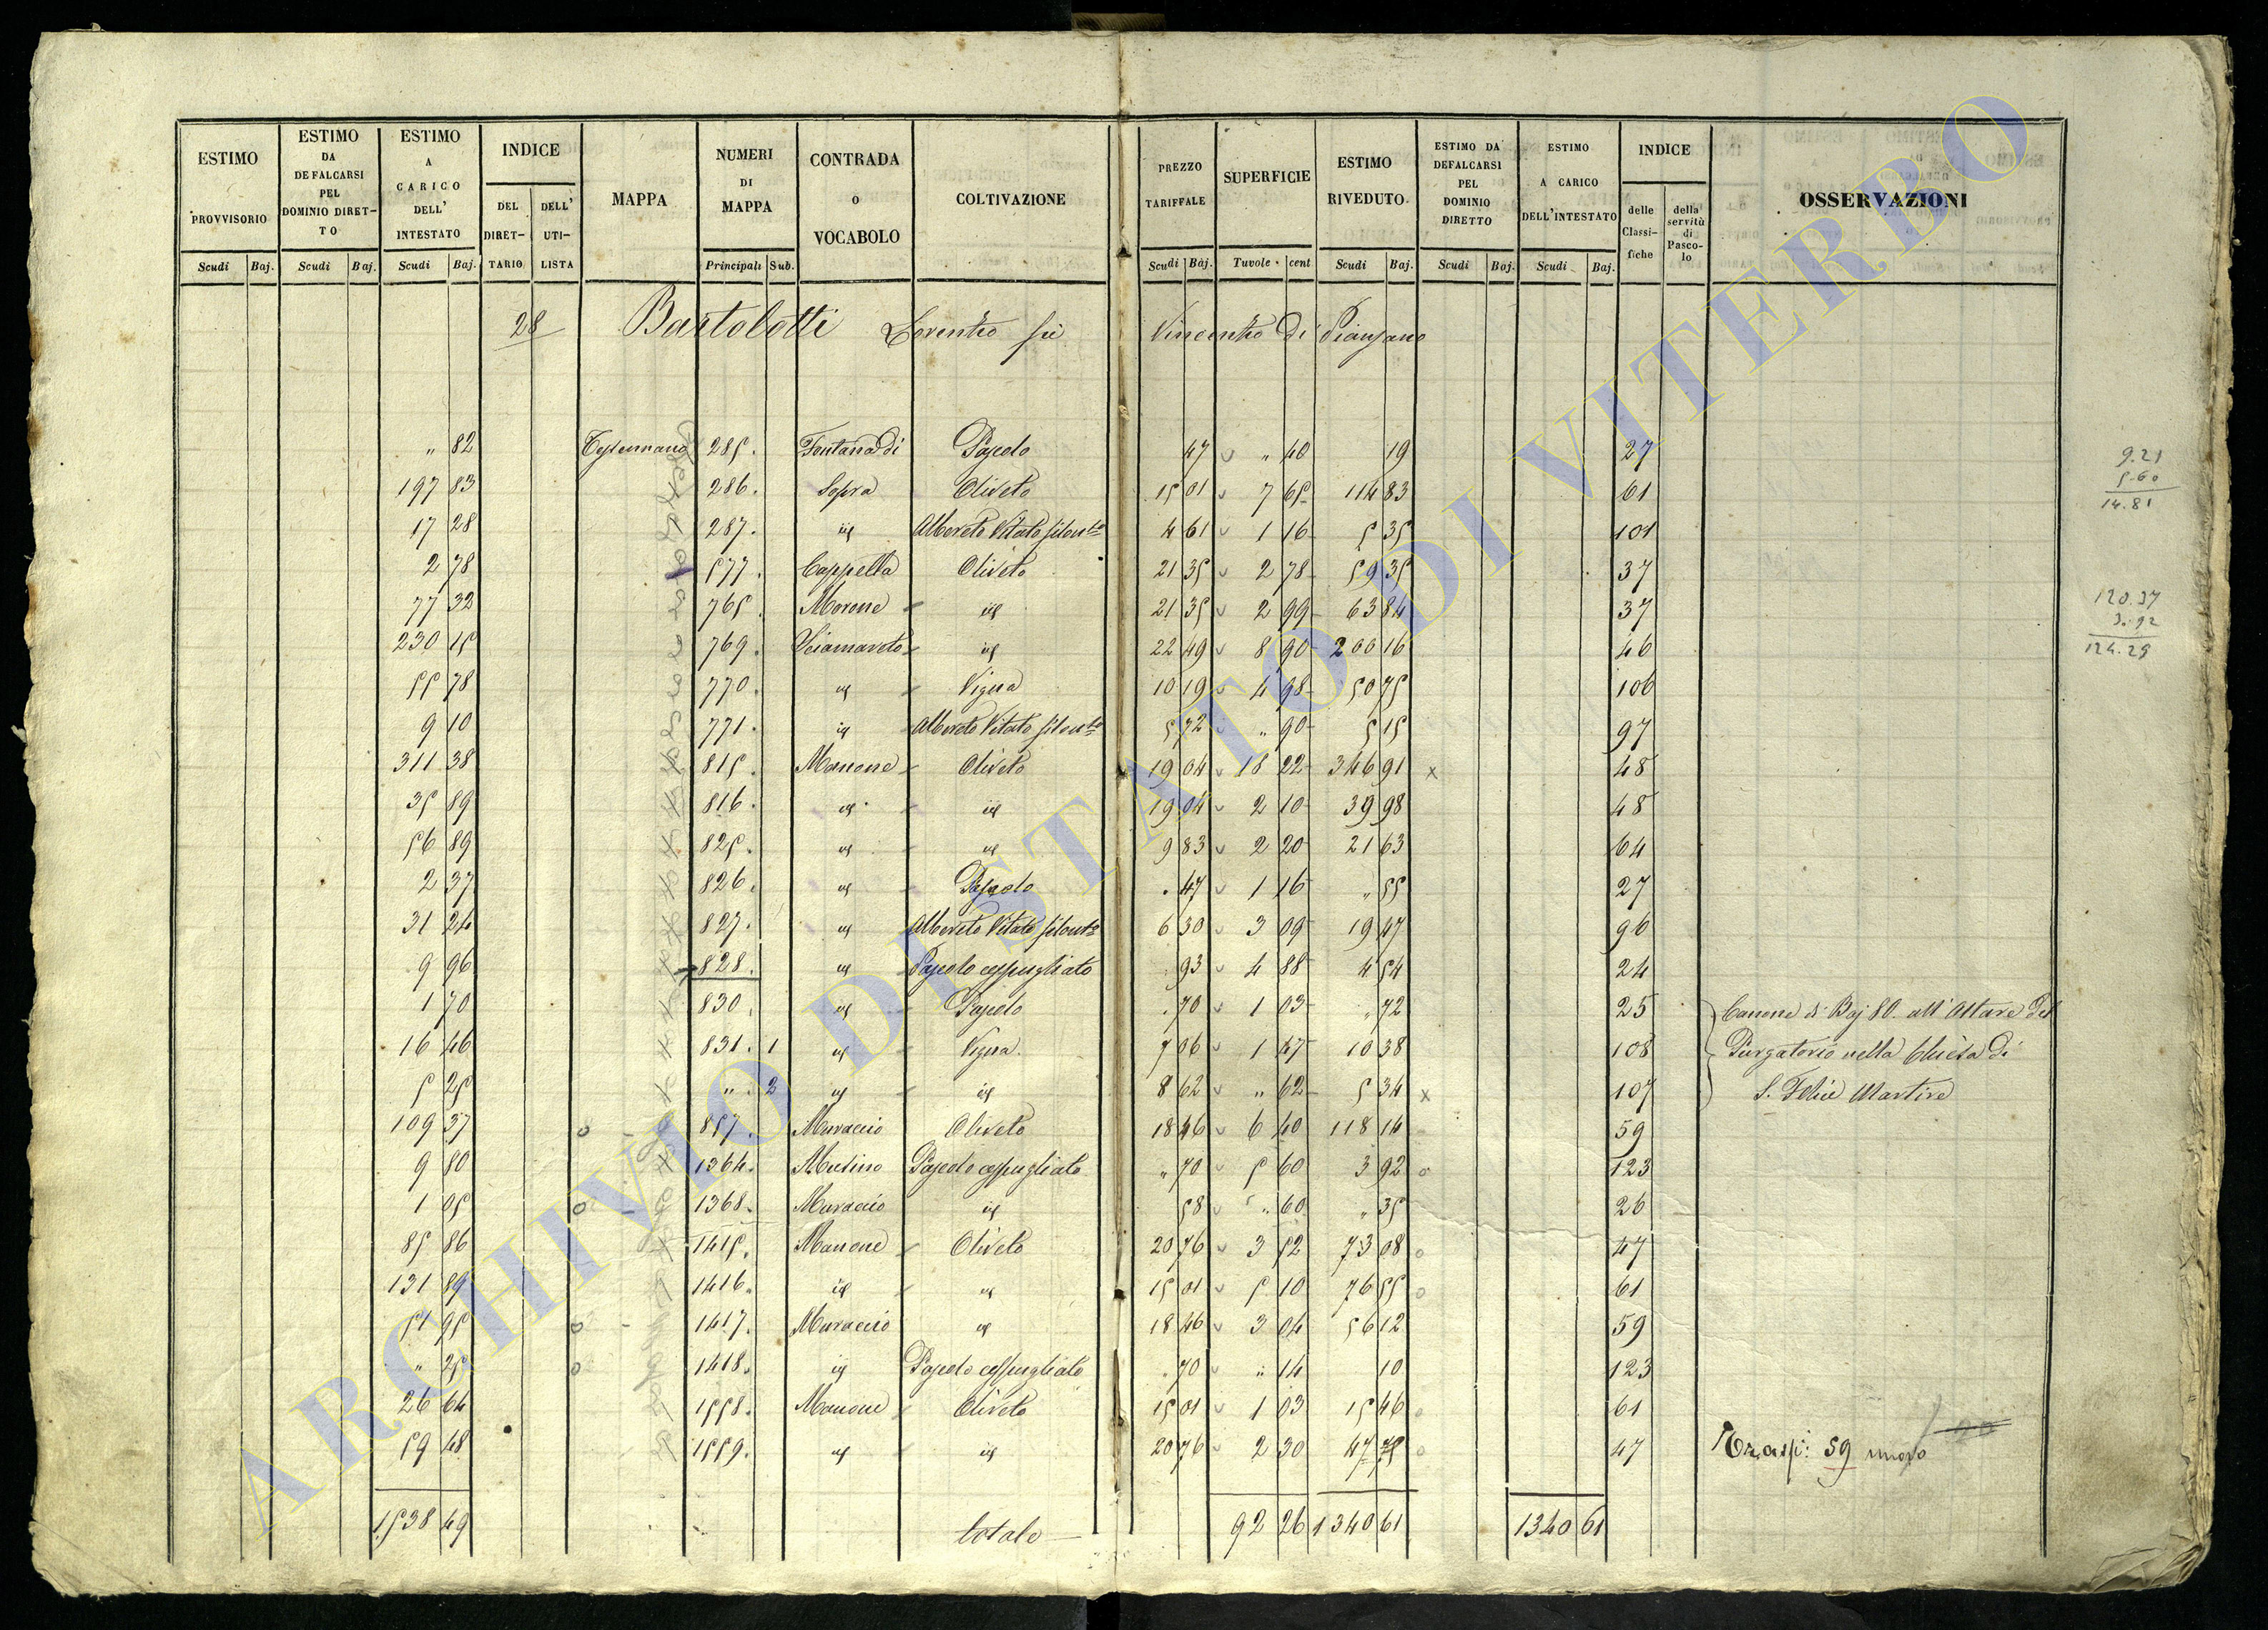 ESTIMO PROVVISORIO Scudi Baj.
ESTIMO DA DEFALCARSI PEL DOMINIO DIRET-TO Scudi Baj.
ESTIMO A CARICO DELL' INTESTATO Scudi Baj.
INDICE DEL DIRET-TARIO DELL' UTI-LISTA
MAPPA
NUMERI DI MAPPA Principali Sub.
CONTRADA O VOCABOLO
COLTIVAZIONE
PREZZO TARIFFALE Scudi Baj.
SUPERFICIE Tavole cent
ESTIMO RIVEDUTO Scudi Baj.
ESTIMO DA DEFALCARSI PEL DOMINIO DIRETTO Scudi Baj.
ESTIMO A CARICO DELL'INTESTATO Scudi Baj.
INDICE delle Classi-fiche della servitù di Pasco-lo
OSSERVAZIONI
28 Bartolotti Lorenzo fù Vincenzo di Piansano
" 82 285. Fontana di Pascolo 47 " 40 19 27
197 83 286. Sopra Oliveto 15 01 7 65 114 83 61
17 28 287. id Alborato Vitato 4 61 1 16 5 35 101
2 78 577. Cappella Oliveto 21 35 2 78 59 35 37
77 32 765. Morone id 21 35 2 99 63 84 37
230 15 769. id 22 49 8 90 200 16 46
55 78 770. id Vigna 10 19 4 98 50 75 106
9 10 771. id Alborato Vitato 5 72 " 90 5 15 97
311 38 815. Manone Oliveto 19 04 18 22 346 91 x 48
35 89 816. id id 19 04 2 10 39 98 48
56 89 825. id id 9 83 2 20 21 63 64
2 37 826. id Pascolo . 47 1 16 " 55 27
31 24 827. id Alborato Vitato 6 30 3 09 19 47 96
9 96 828. id Pascolo cespugliato . 93 4 88 4 54 24
1 70 830. id Pascolo . 70 1 03 " 72 25 Canone di Baj 80. all'Altare del
16 46 831. 1 id Vigna 7 06 1 47 10 38 108 Purgatorio nella Chiesa di
5 25 " . 2 id id 8 62 " 62 5 34 x 107 S. Felice Martire
109 37 o 857. Muraccio Oliveto 18 46 6 40 118 14 59
9 80 1364. Pascolo cespugliato " 70 5 60 3 92 o 123
1 05 o 1368. Muraccio id 58 " 60 " 35 26
85 86 1415. Manone Oliveto 20 76 3 52 73 08 o 47
131 89 1416. id id 15 01 5 10 76 55 o 61
51 95 o 1417. Muraccio id 18 46 3 04 56 12 59
" 25 o 1418. id Pascolo cespugliato . 70 " 14 10 123
26 64 1558. Manone Oliveto 15 01 1 03 15 46 o 61
59 48 1559. id id 20 76 2 30 47 75 o 47 59 nuovo
1538 49 totale 92 26 1340 61 1340 61
9.21
5.60
14.81
120.37
3.92
124.29
ARCHIVIO DI STATO DI VITERBO